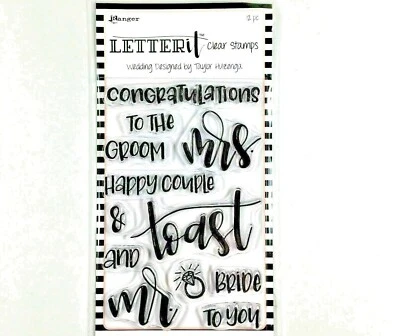 Ranger
12 pc
LETTER it Clear Stamps
Wedding Designed by Taylor Huizenga
CONGRATULATIONS
TO THE
GROOM mrs.
HAPPY COUPLE
& toast
AND
mr. BRIDE
TO YOU